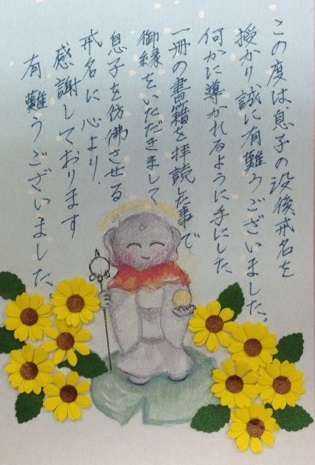 この度は息子の没後戒名を
授かり誠に有難うございました。
何かに導かれるように手にした、
一冊の書籍を拝読した事で
御縁をいただきまして
息子を彷彿させる
戒名に心より
感謝しております
有難うございました。